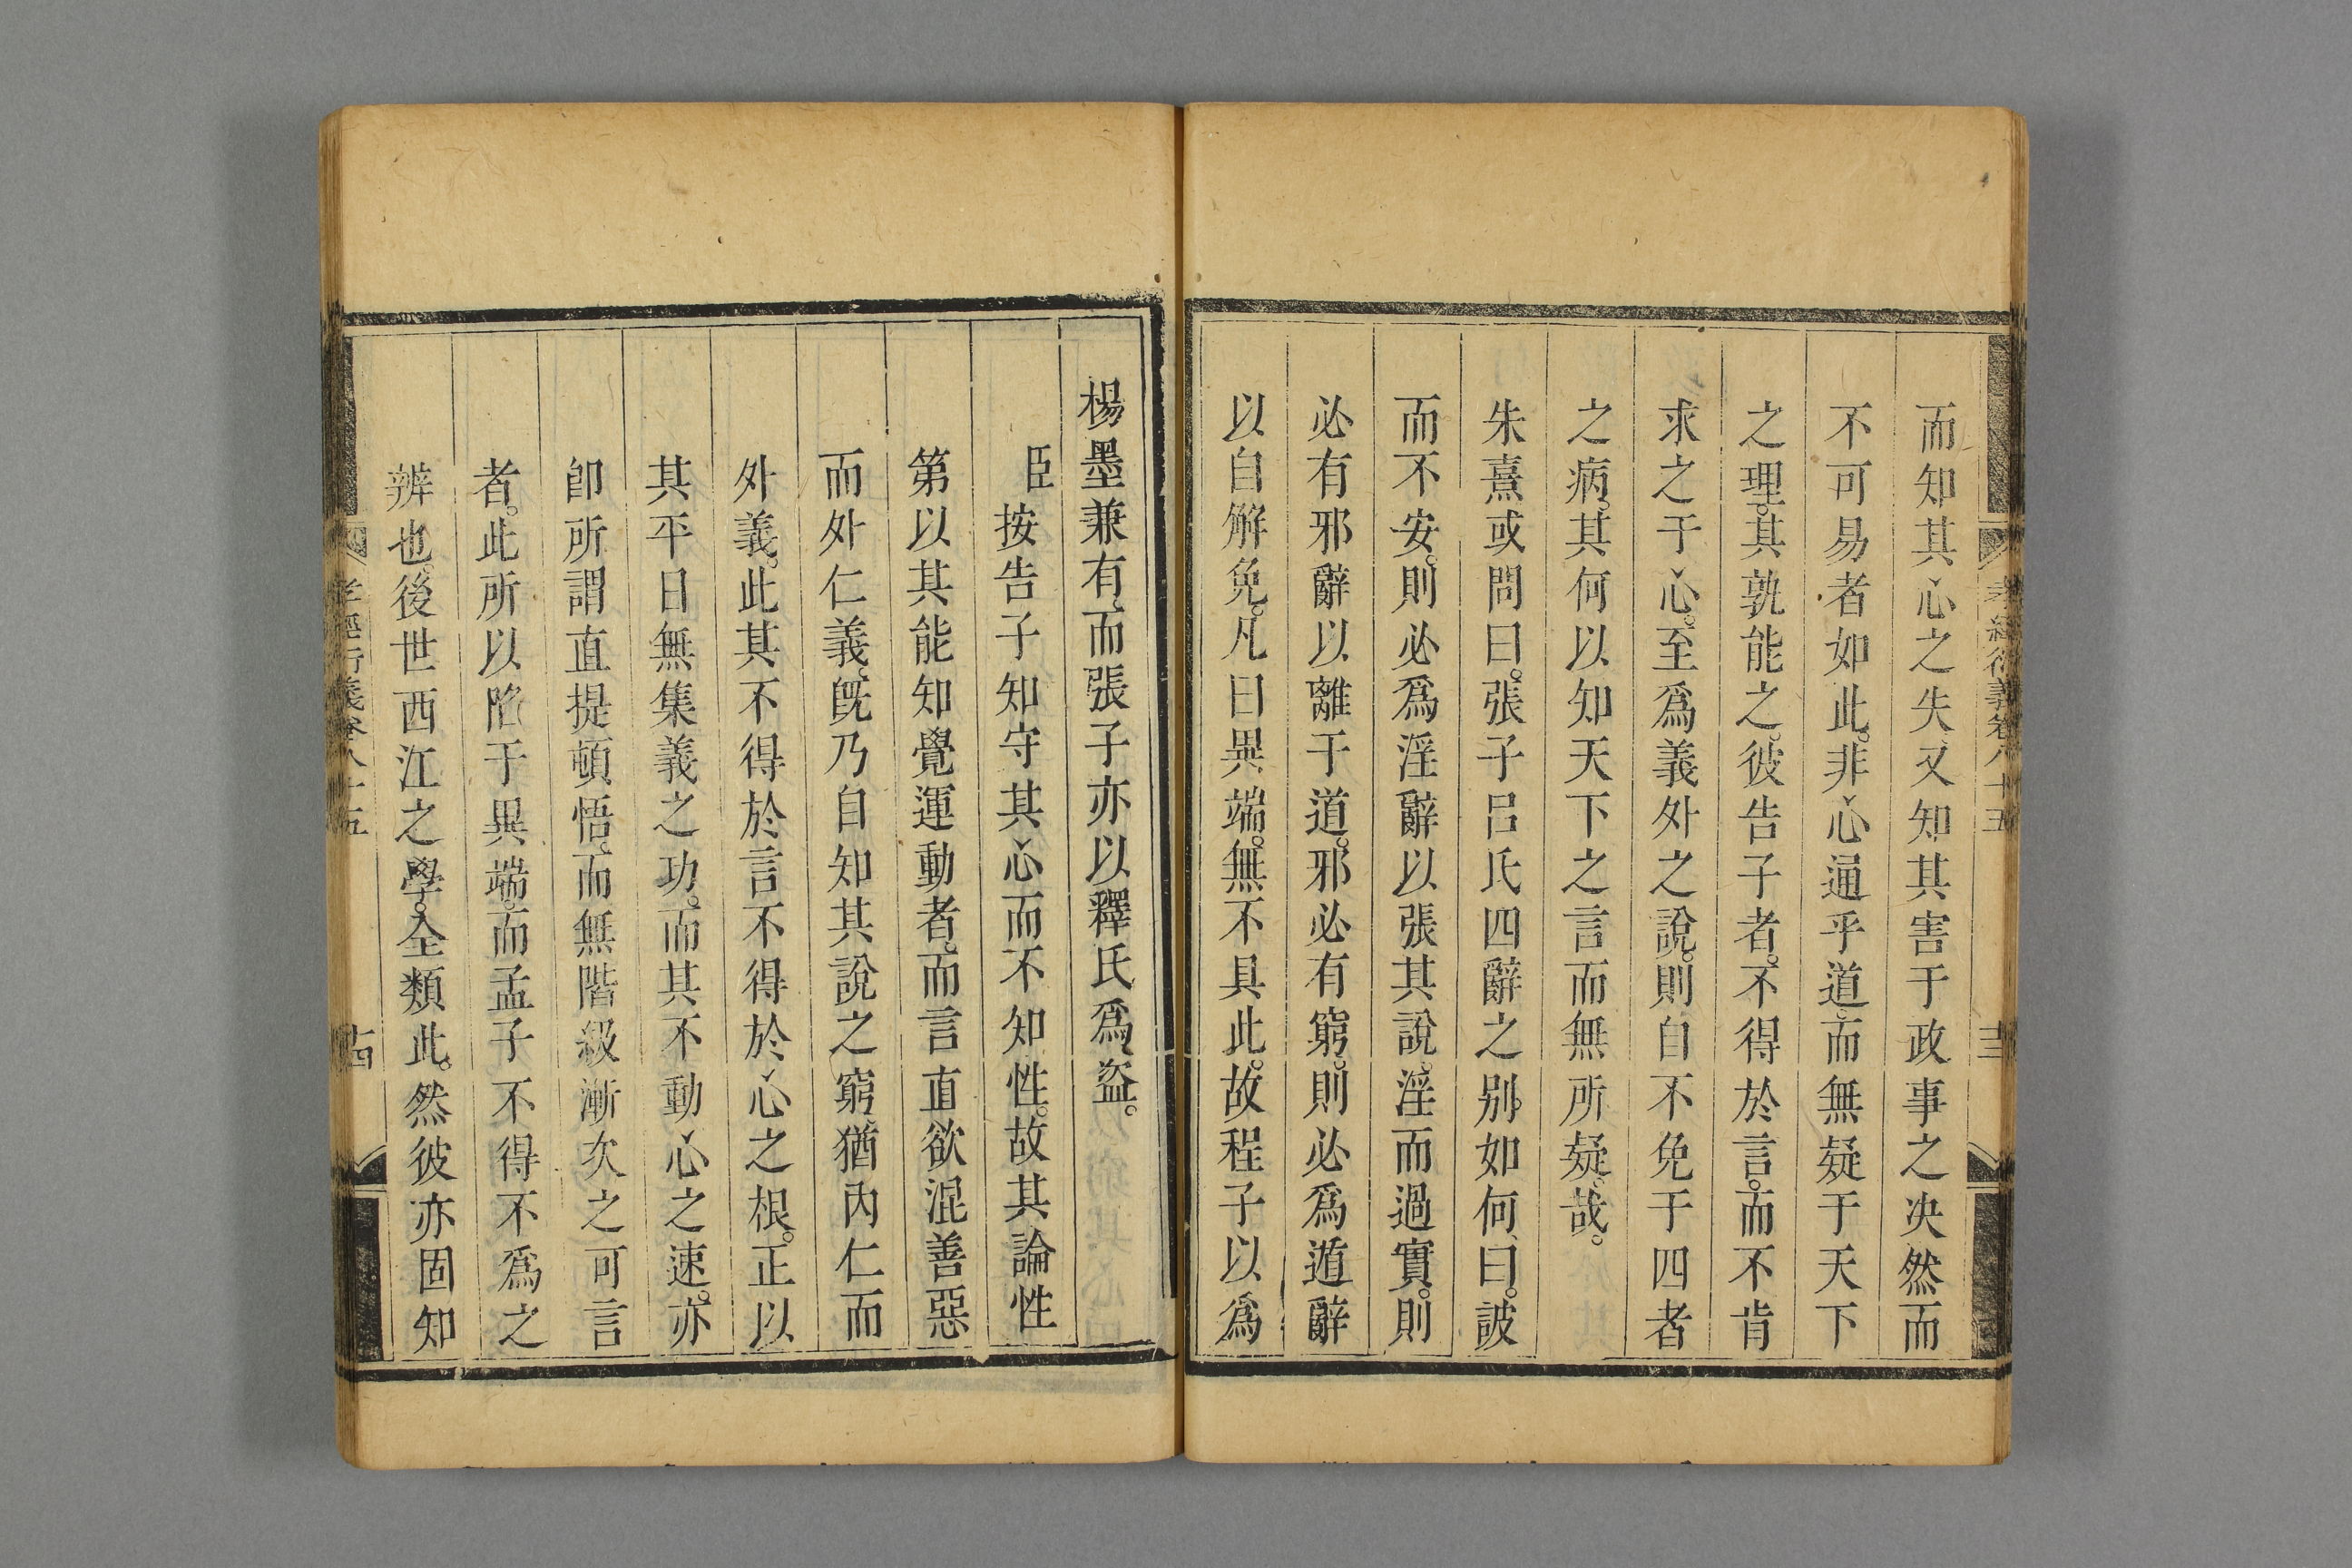 孝經衍義卷八十五
十三
而知其心之失、又知其害于政事之决然而
不可易者如此。非心通乎道。而無疑于天下
之理。其孰能之。彼告子者。不得於言。而不肯
求之于心。至爲義外之說。則自不免于四者
之病。其何以知天下之言而無所疑哉。
朱熹或問曰。張子呂氏四辭之别。如何、曰。詖
而不安。則必爲淫辭以張其說。淫而過實。則
必有邪辭以離于道。邪必有窮。則必爲遁辭
以自解免。凡曰異端。無不具此。故程子以爲
楊墨兼有。而張子亦以釋氏爲盜。
臣按告子知守其心而不知性。故其論性
第以其能知覺運動者。而言直欲混善惡
而外仁義。旣乃自知其說之窮、猶內仁而
外義。此其不得於言不得於心之根。正以
其平日無集義之功。而其不動心之速。亦
卽所謂直提頓悟。而無階級漸次之可言
者。此所以陷于異端。而孟子不得不爲之
辨也。後世西江之學。全類此。然彼亦固知
孝經衍義卷八十五
十四